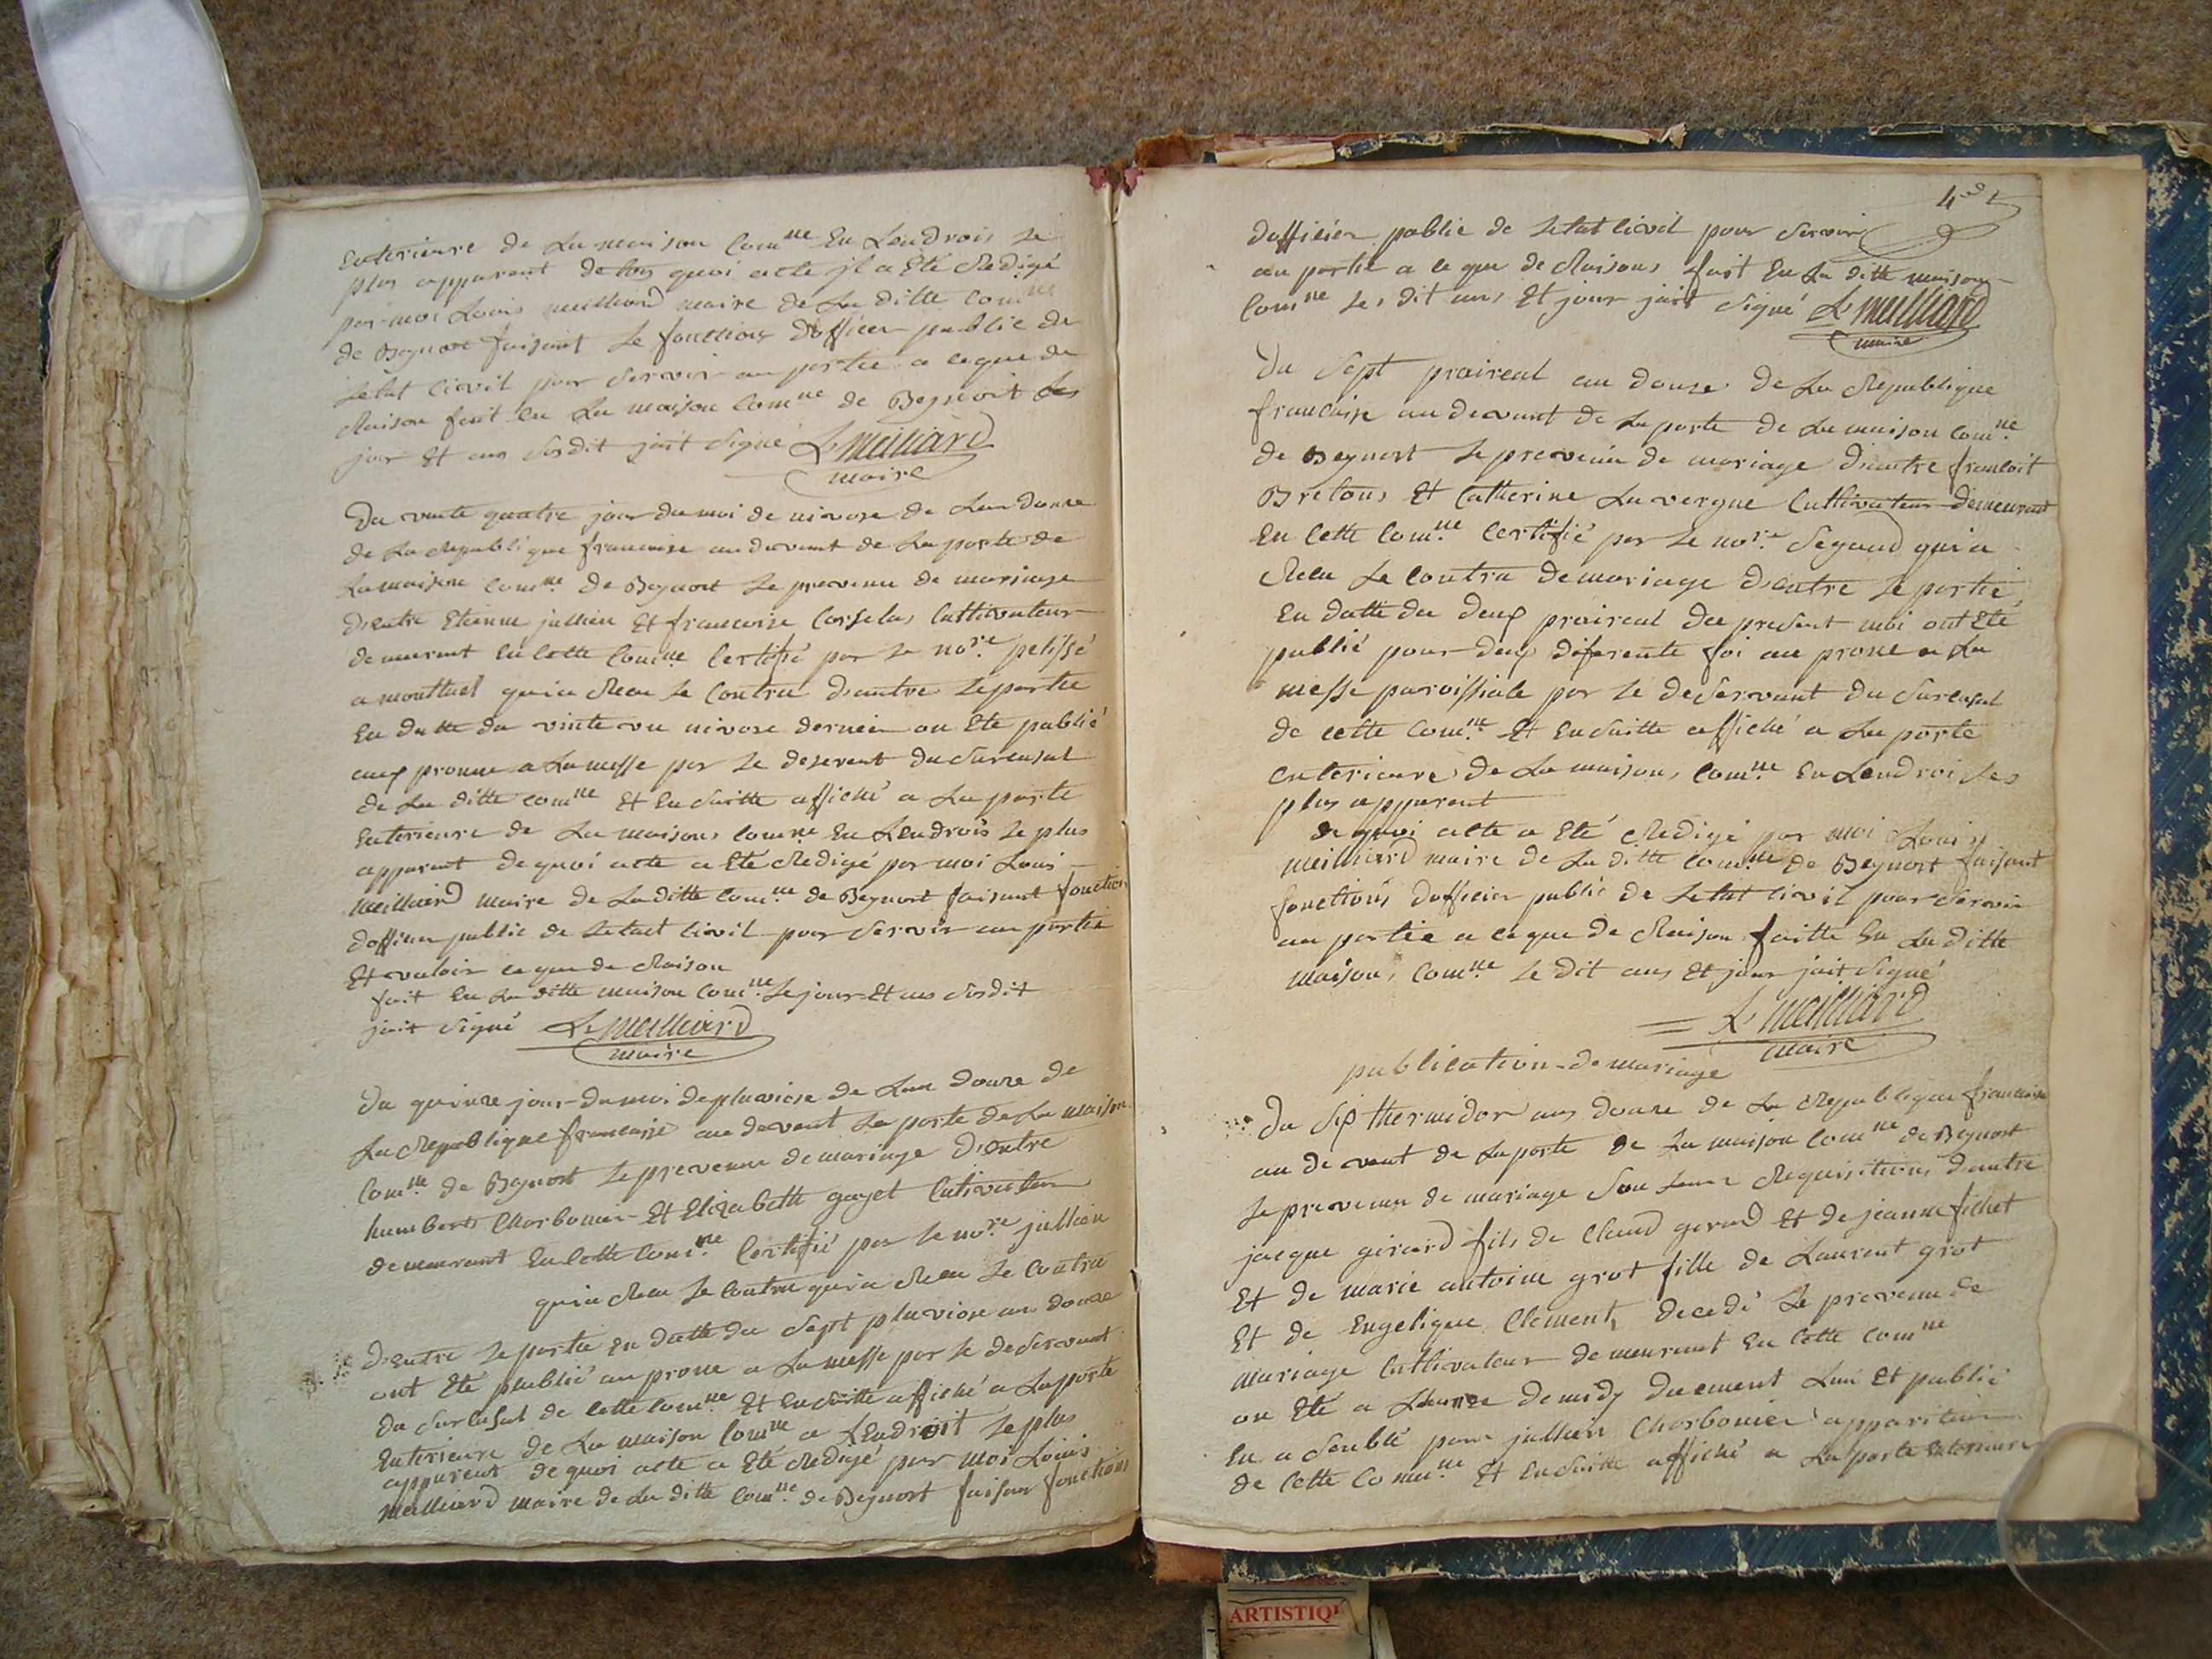 Exterieure de La maison Com.ne En Lendrois Le
plus apparent de quoi acte jl a Eté Redigé
par moi Louis meilliard maire de La ditte Com.ne
de Beynost faisant Le fonctions dofficier public de
Letat Civil pour Servir au partie a ce que de
Raison fait En La maison Com.ne de Beynost Les
jour Et ans Susdit jait Signé L. Meilliard
maire
Du vinte quatre jour du moi de nivose de Lan douze
de La Republique francaise au devant de La porte de
La maison Com.ne de Beynost Le prevenu de mariage
Dentre Etienne jullien Et francoise Corselas Cultivateur
demeurant En Cette Comune Certifié par Le no.re petissé
a montluel qui a Recu Le Contra dentre Le partie
En datte du vinte un nivose dernier on Eté publié
aux pronne a La messe par Le deservent du Surcusal
de La ditte Com.ne Et En Suitte affiché a La porte
Exterieure de La maison, Com.ne En Lendrois Le plus
apparent de quoi acte a Eté Redigé par moi Louis
Meilliard maire de La ditte Com.ne de Beynost faisant fonction
dofficier public de Letat Civil pour Servir au partie
Et valoir ce que de Raison
fait En La ditte maison Com.ne Le jour Et ans Susdit
jait Signé L. Meilliard
maire
Du quinze jour du moi de pluviose de Lan douze de
La Republique francaise au devant La porte de La maison
Com.ne de Beynost Le prevenu de mariage Dentre
humbert Charbonier Et Elizabette gayet Cultivateur
demeurant En Cette Com.ne Certifié par Le no.re jullien
qui a Recu Le Contra qui a Recu Le Contra
Dentre Le partie En datte du Sept pluviose an douze
ont Eté publié au prone a La messe par Le deservant
du Surcusal de Cette Com.ne Et En Suitte affiché a La porte
Exterieure de La maison Com.ne a LEndroit Le plus
apparent de quoi acte a Eté Redigé par moi Louis
Meilliard maire de La ditte Com.ne de Beynost faisan fonctions
4
dofficier public de Letat Civil pour Servir
au partie a ce que de Raisons fait En La ditte maison
Com.ne Les dit ans Et jour jait Signé L. Meilliard
maire
Du Sept praireal an douze de La Republique
francaise au devant de La porte de La maison Com.ne
de Beynost Le prevenu de mariage dentre francoit
Bretons Et Catherine Lavergne Cultivateur demeurant
En Cette Com.ne Certifié par Le no.re Segaud qui a
Recu Le Contra de mariage dentre Le partie
En datte du deux praireal du present moi ont Eté
publié pour deux diferente foi au prone a La
messe paroissiale par Le deservant du Surcusal
de cette Com.ne Et En Suitte affiché a La porte
Exterieure de La maison, Com.ne En Lendroi Les
plus apparent
de quoi acte a Eté Redigé par moi Louis
Meilliard maire de La ditte Com.ne de Beynost faisant
fonctions dofficier public de Letat Civil pour Servir
au partie a ce que de Raison faitte En La ditte
maison, Com.ne Le dit ans Et jour jait Signé
L. Meilliard
maire
publication de mariage
Du Six thermidor ans douze de La Republique francaise
au devant de La porte de La maison Com.ne de Beynost
Le prevenu de mariage Sou Leur Requisitions dentre
jacque girard fils de Claud gerard Et de jeanne fichet
Et de marie antoine grot fille de Laurent grot
Et de Engelique Clement, decedé Le prevenu de
mariage Cultivateur demeurant En Cette Com.ne
on Eté a Lheure de midy duement Lue Et publié
En a Semblé par jullien Charbonier appariteur
de Cette Com.ne Et En Suitte affiché a La porte Exterieure
ARTISTIQ